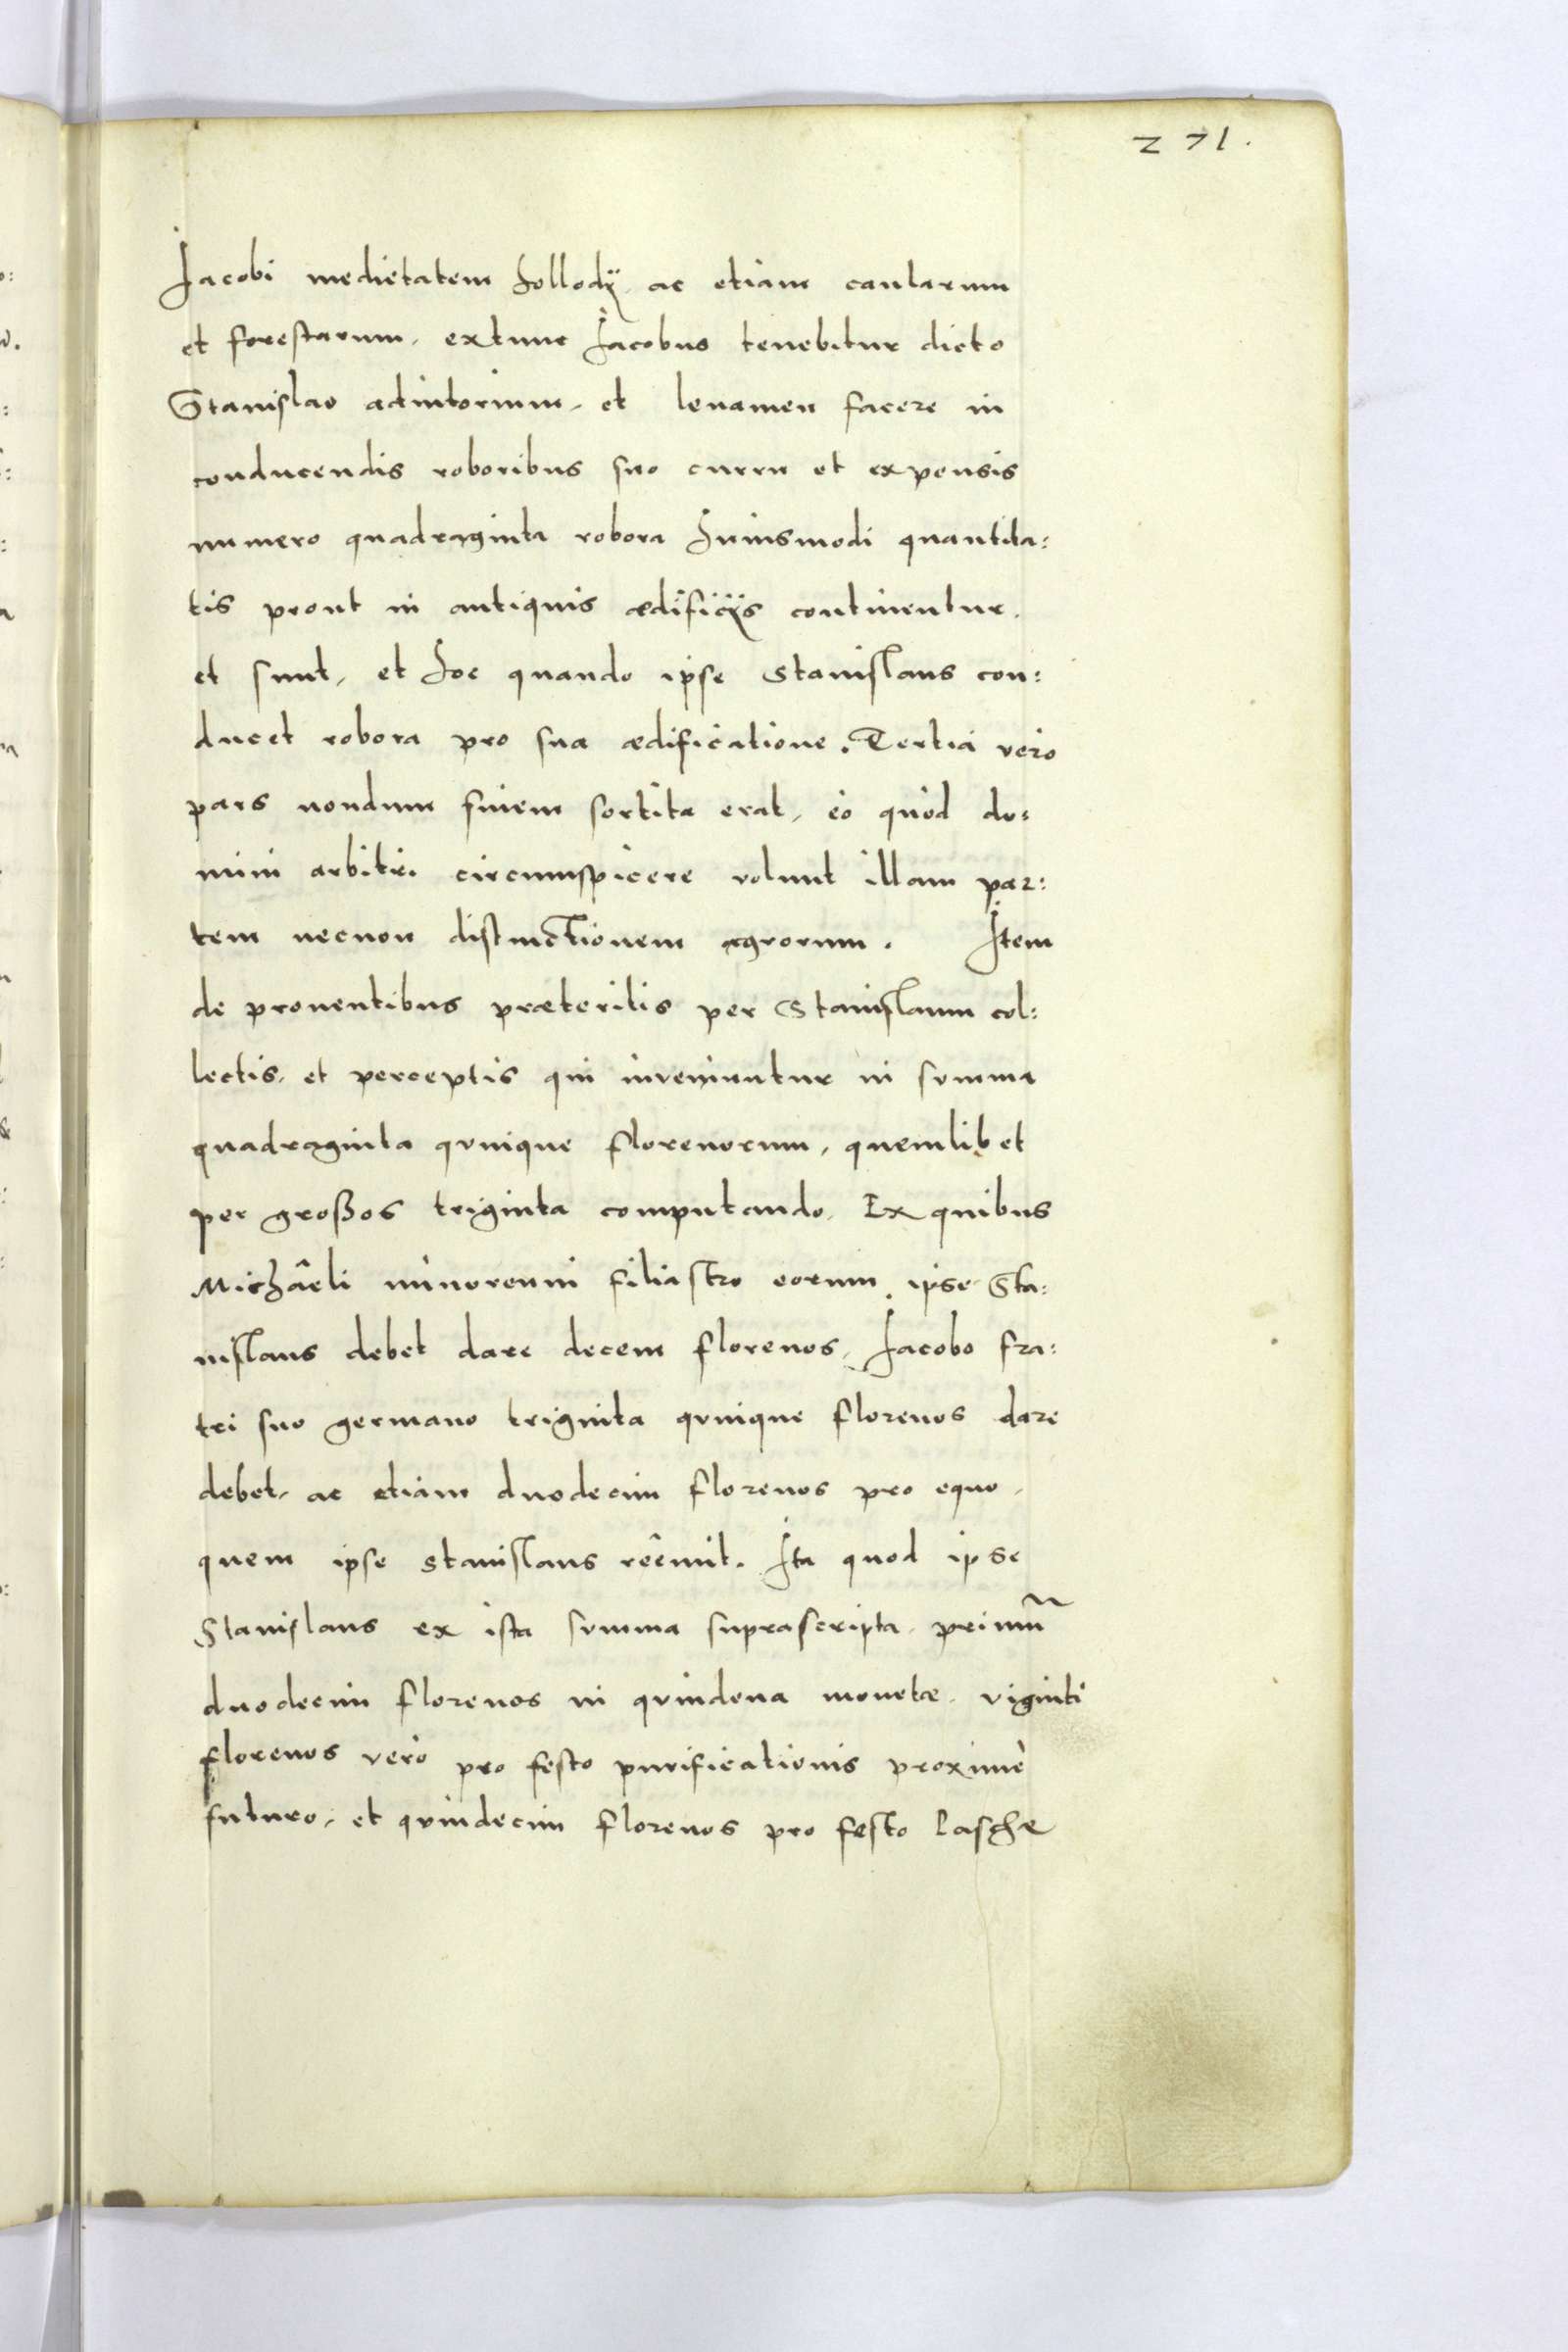 271.
Iacobi medietatem hollodij ac etiam caularum
et forestarum, extunc Iacobus tenebitur dicto
Stanislao adiutorium, et leuamen facere in
conducendis roboribus suo curru et expensis
numero quadraginta robora huiusmodi quantita:
tis prout in antiquis ædificijs continentur.
et sunt, et hoc quando ipse Stanislaus con:
ducet robora pro sua ædificatione. Tertia verò
pars nondum finem sortita erat, eò quòd do:
mini arbitri circumspicere volunt illam par:
tem necnon distinctionem agrorum. Item
de prouentibus præteritis per Stanislaum col:
lectis, et perceptis qui inveniuntur in summa
quadraginta quinque florenorum, quemlibet
per großos triginta computando, Ex quibus
Michâeli minorenni filiastro eorum, ipse Sta:
nislaus debet dare decem florenos, Iacobo fra:
tri suo germano triginta quinque florenos dare
debet, ac etiam duodecim florenos pro equo,
quem ipse Stanislaus reêmit. Ita quod ipse
Stanislaus ex ista summa suprascripta, primũ
duodecim florenos in quindena monetæ, viginti
florenos verò pro festo purificationis proximè
futuro, et quindecim florenos pro festo Pasche